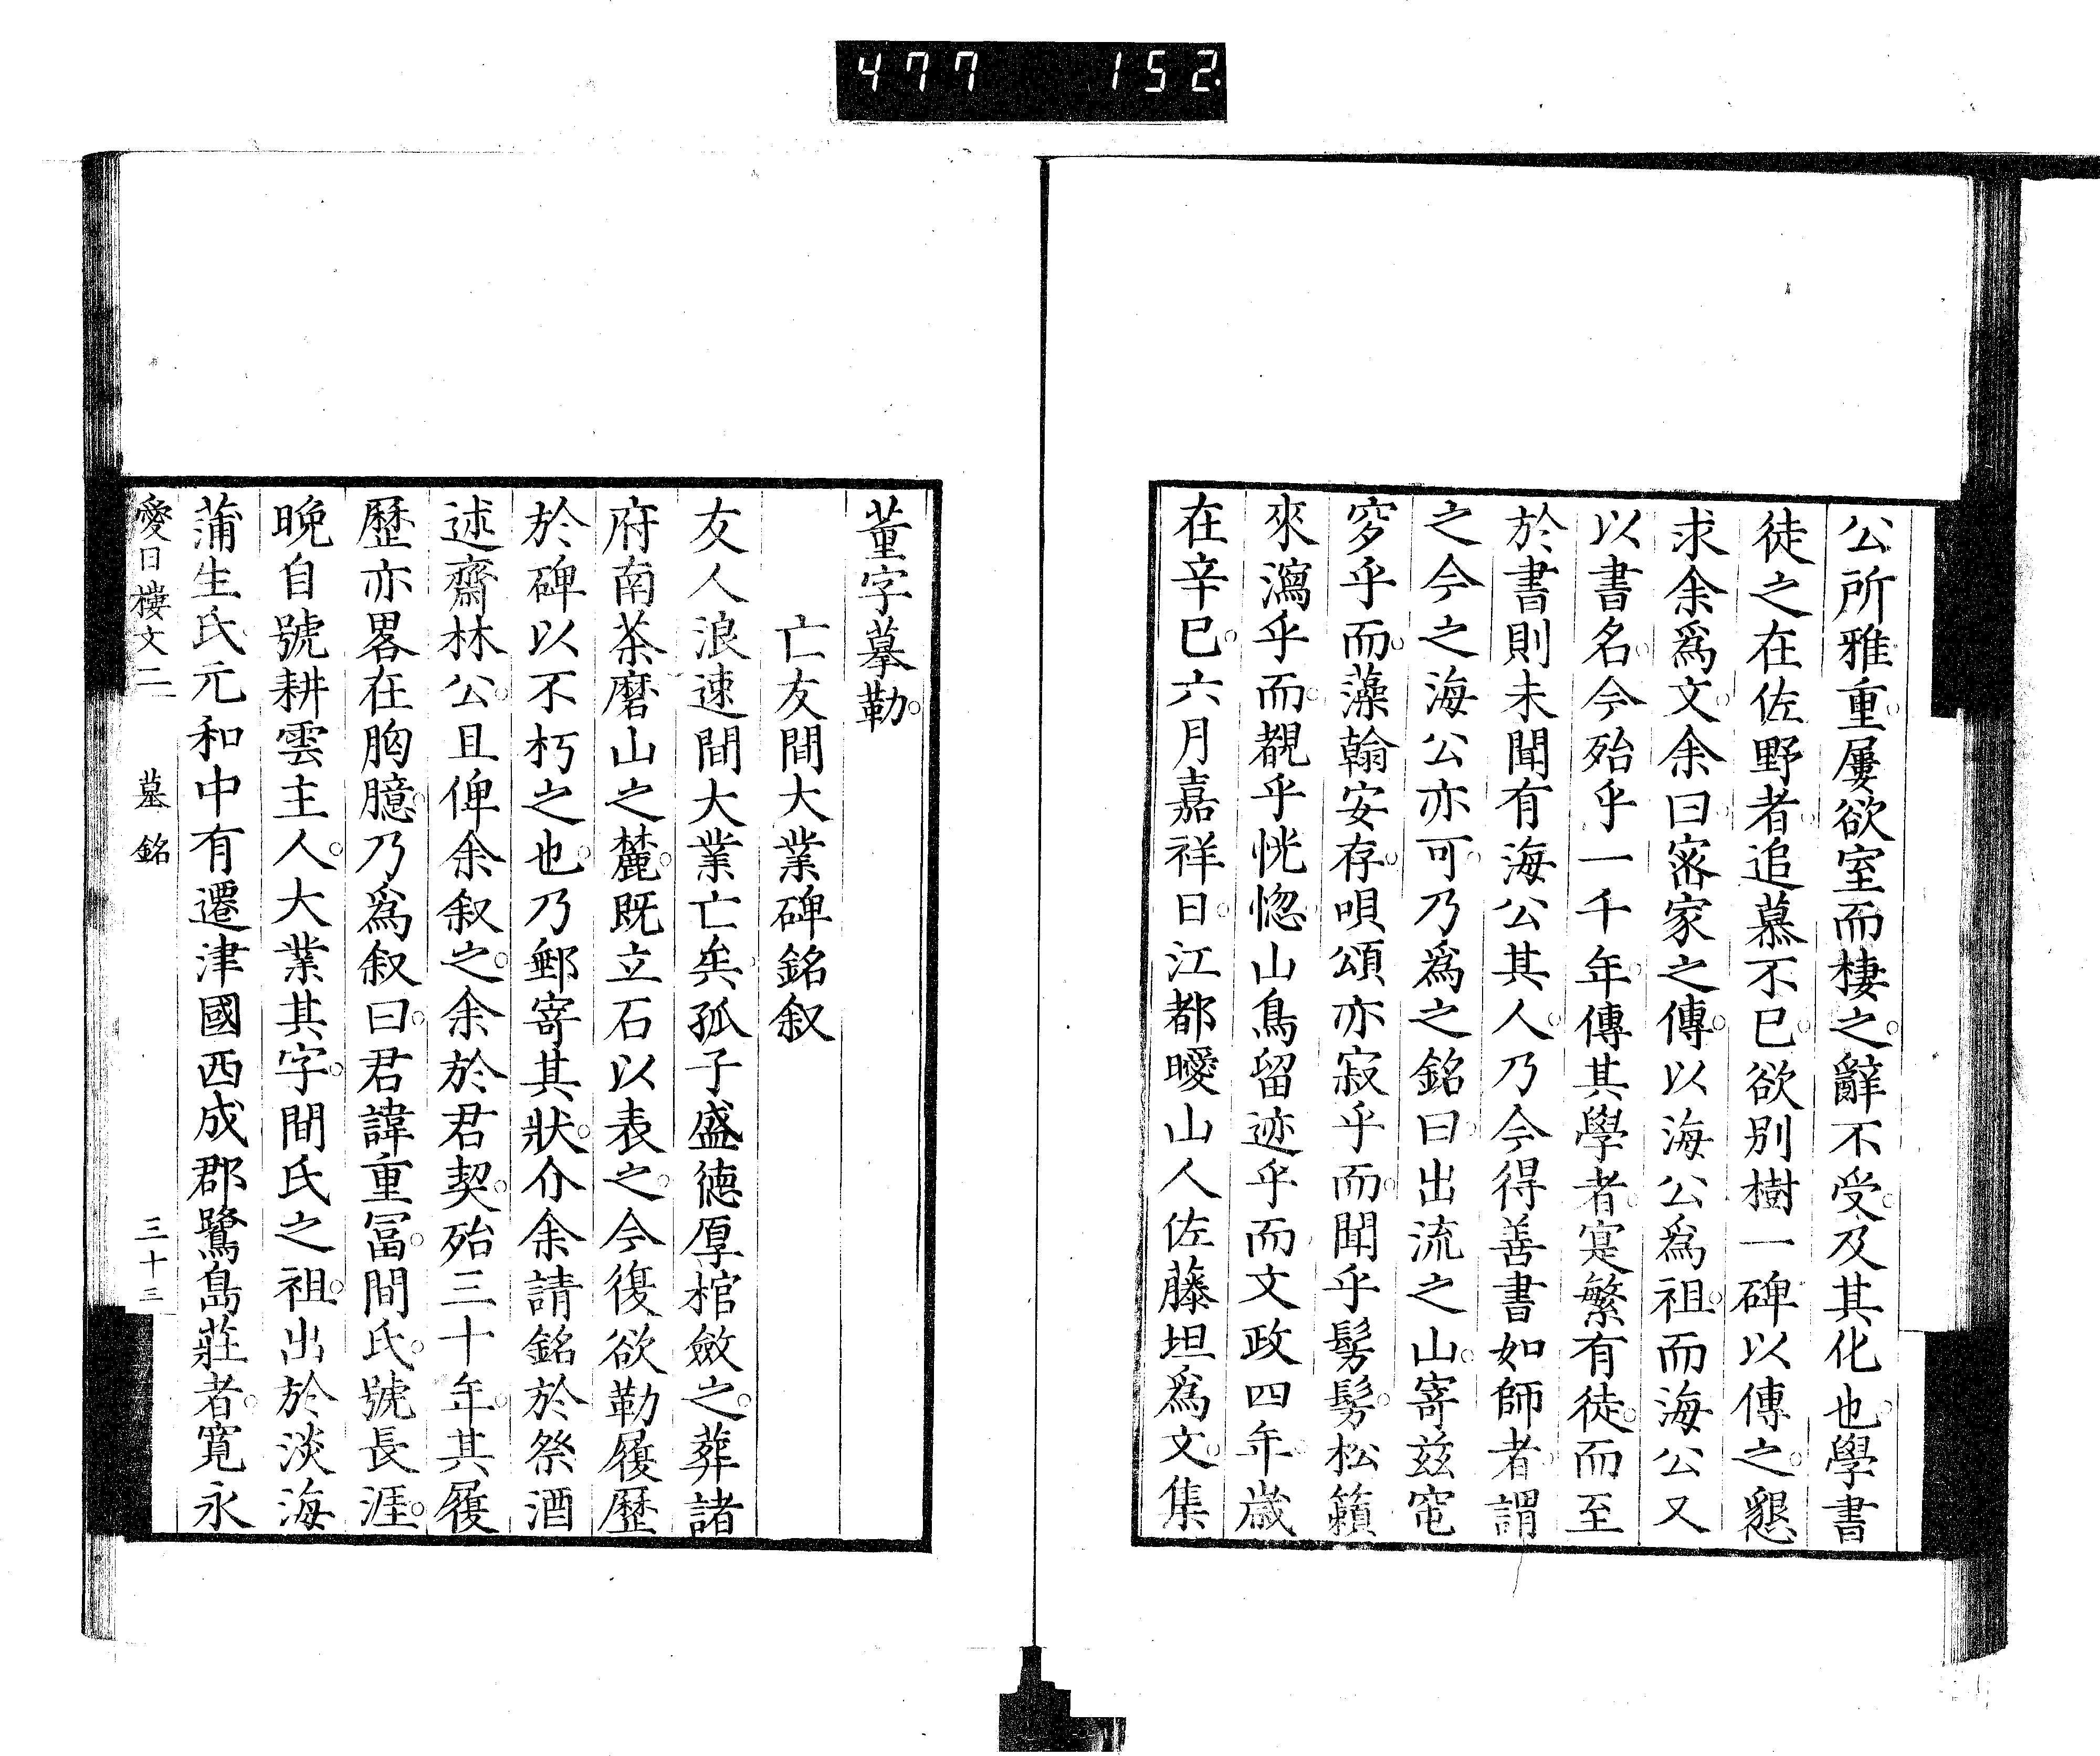 477 152
公所雅重。屢欲室而棲之。辭不受。及其化也。學書
徒之在佐野者。追慕不已。欲別樹一碑以傳之。懇
求余爲文。余曰。密家之傳。以海公爲祖。而海公又
以書名。今殆乎一千年。傳其學者。寔繁有徒。而至
於書則未聞有海公其人。乃今得善書如師者。謂
之今之海公亦可。乃爲之銘曰。出流之山。寄茲窀
穸乎。而藻翰安存。唄頌亦寂乎。而聞乎髣髣。松籟
來瀉乎。而覩乎恍惚。山鳥留迹乎而文政四年歲
在辛巳。六月嘉祥日。江都曖山人佐藤坦爲文。集
董字摹勒。
亡友間大業碑銘叙
友人浪速間大業亡矣。孤子盛德厚棺斂之。葬諸
府南茶磨山之麓。既立石以表之。今復欲勒履歷
於碑以不朽之也。乃郵寄其狀。介余請銘於祭酒
述齋林公。且俾余叙之。余於君契。殆三十年。其履
歷亦畧在胸臆。乃爲叙曰。君諱重冨。間氏。號長涯。
晩自號耕雲主人。大業其字。間氏之祖。出於淡海
蒲生氏元和中有遷津國西成郡鷺島莊者。寬永
愛日樓文二 墓銘 三十三